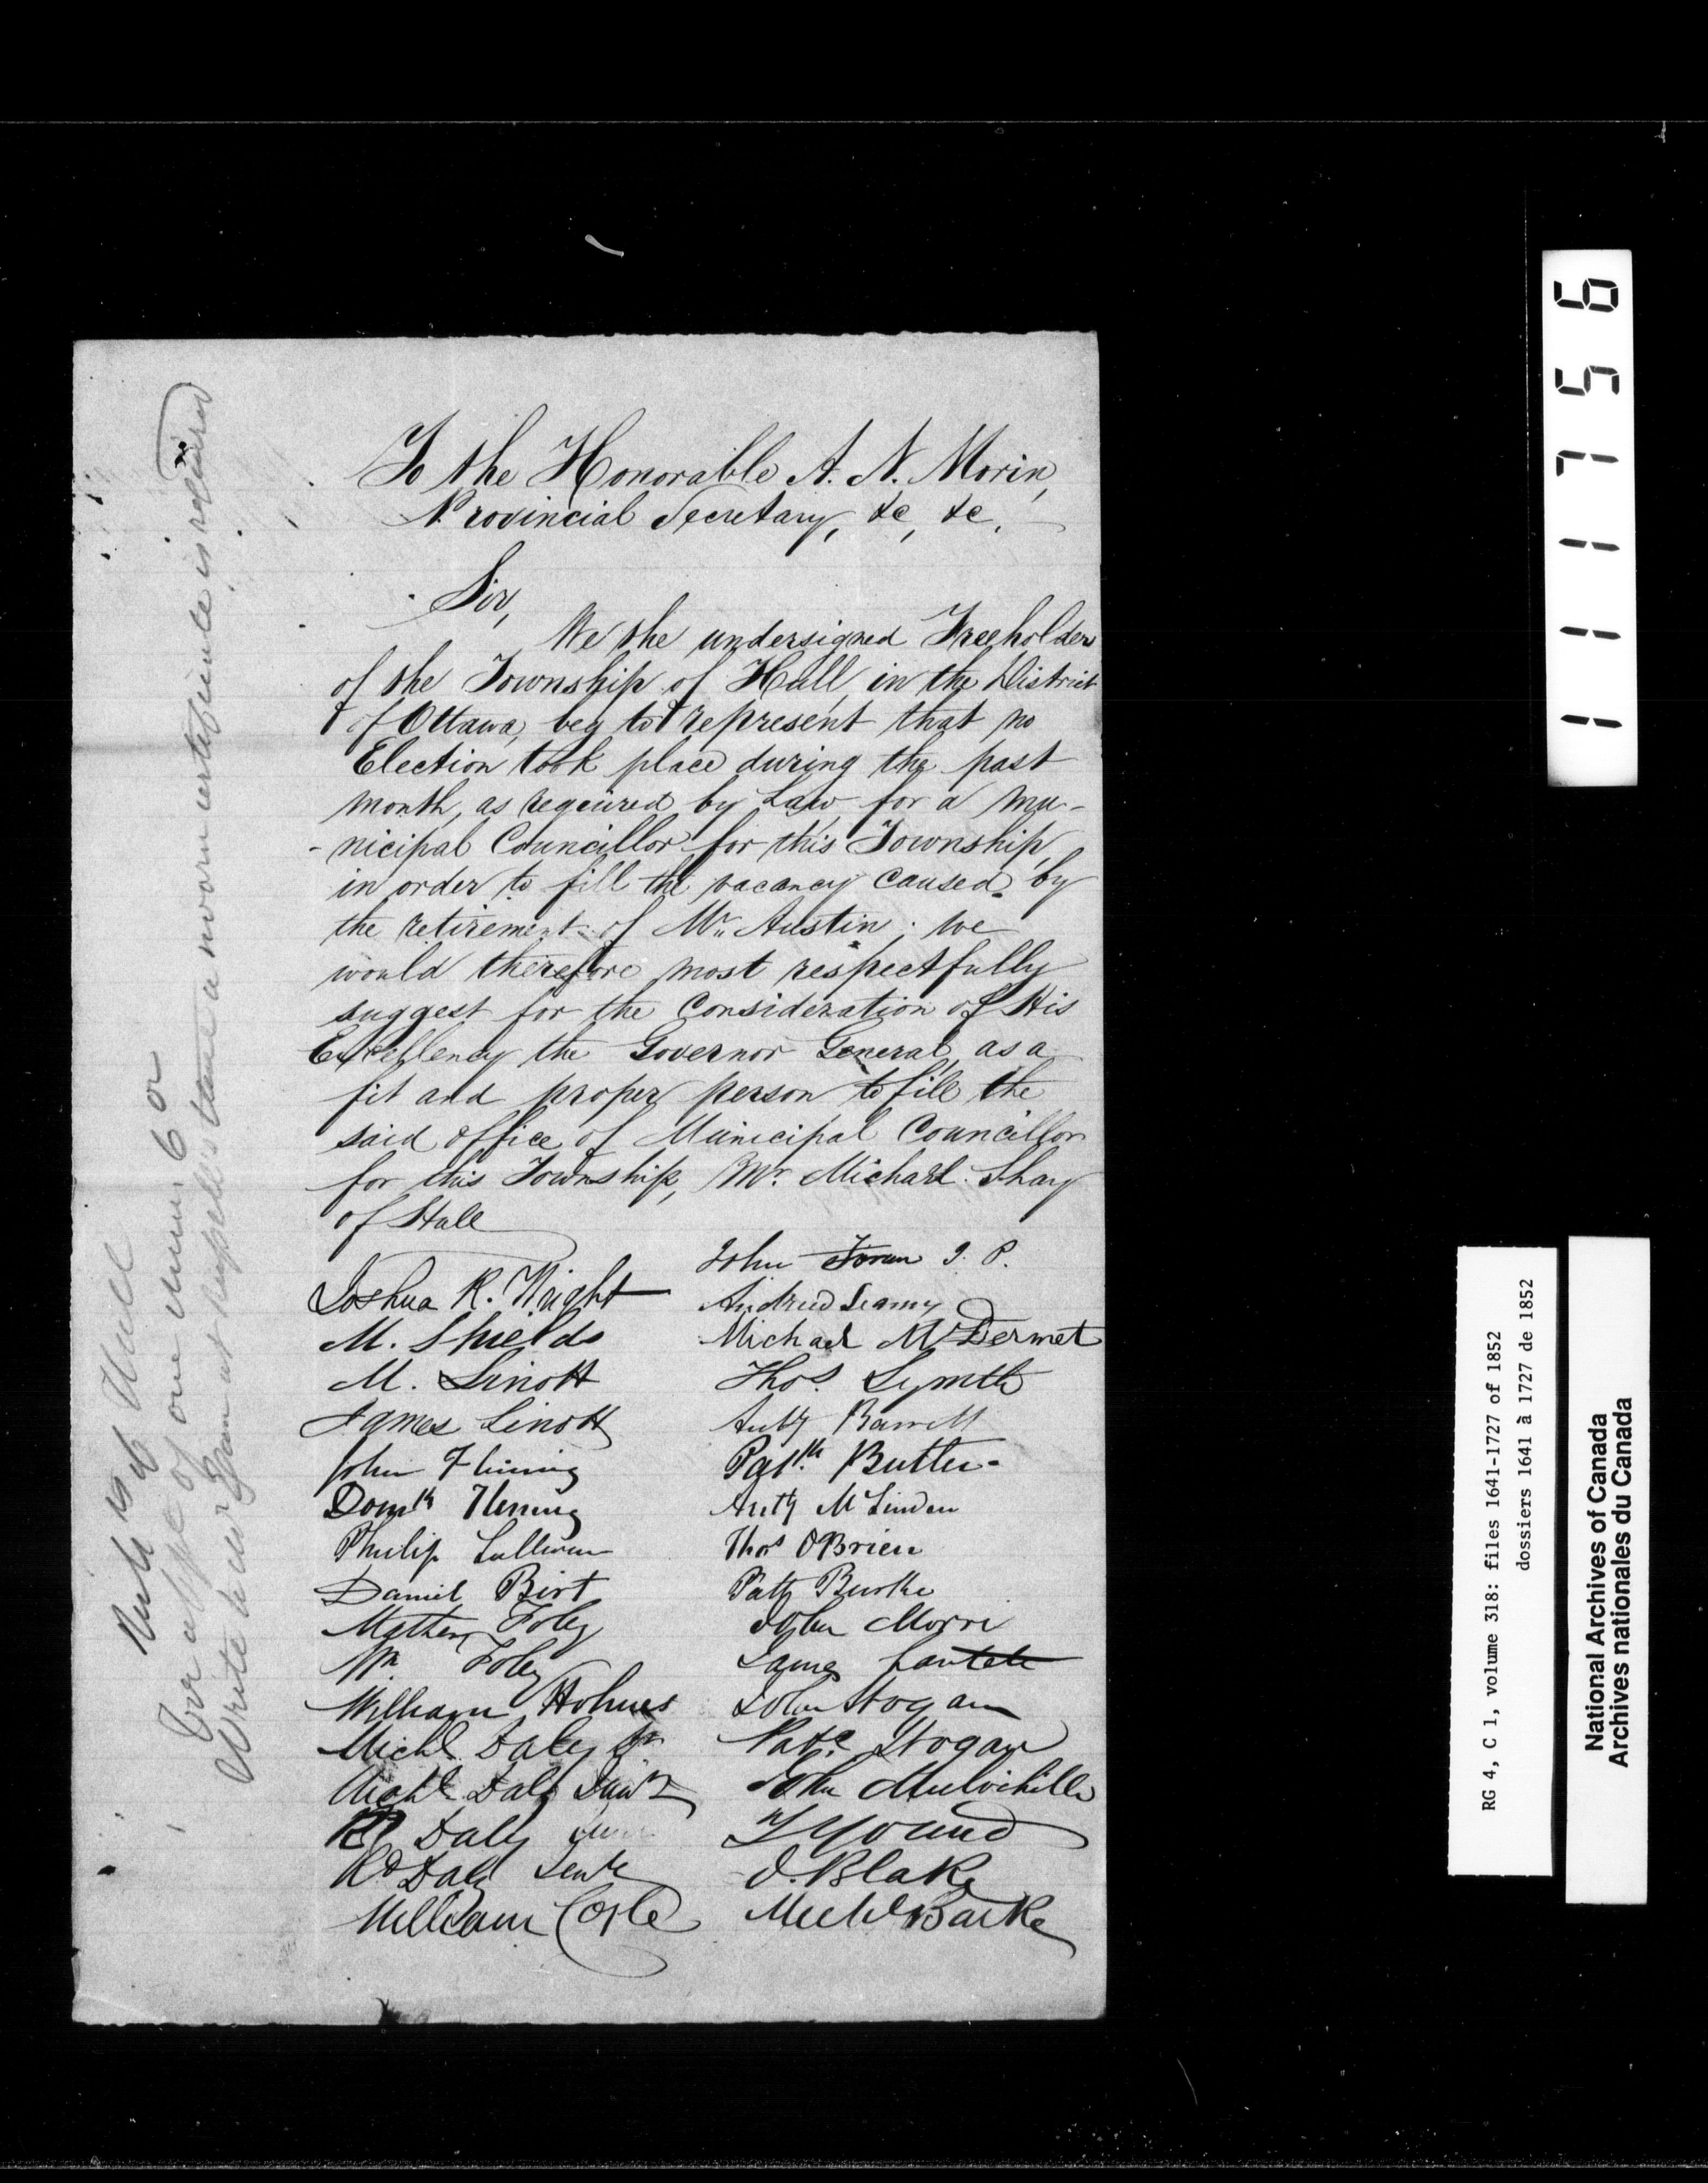 To the Honorable A. N. Morin,
Provincial Secretary, &c, &c.
Sir,
We the undersigned Freeholders
of the Township of Hull, in the District
of Ottawa, beg to represent that no
Election took place during the past
month, as required by Law for a mu-
-nicipal Councillor for this Township,
in order to fill the vacancy caused by
the retirement of Mr. Austin; we
would therefore most respectfully
suggest for the Consideration of His
Excellency the Governor General, as a
fit and proper person to fill the
said office of Municipal Councillor
for this Township, Mr. Michael Shay
of Hull
Joshua R. Wright
M. Shields
M. Sinott
James Sinott
John Fleming
Domk Fleming
Philip Sullivan
Daniel Birt
Mathew Foley
Wm Foley
William Holmes
Michl Daly Sr
Michl Daly Junr
Rd Daly Junr
Rd Daly Senr
William Cosle
John Foran J. P.
Andrew Leamy
Michael McDermet
Thos. Symth
Anty Barrett
Patk. Butler
Anty McLinden
Thos OBrien
Patk Burke
John Morri
James
John Hogan
Patk Hogan
John Mulvihill
T Yound
J. Blake
Michl Burke
is of Hull
of one
Write to Mr Egan at
a sworn certificate is required
111756
RG 4, C 1, volume 318: files 1641-1727 of 1852
dossiers 1641 à 1727 de 1852
National Archives of Canada
Archives nationales du Canada